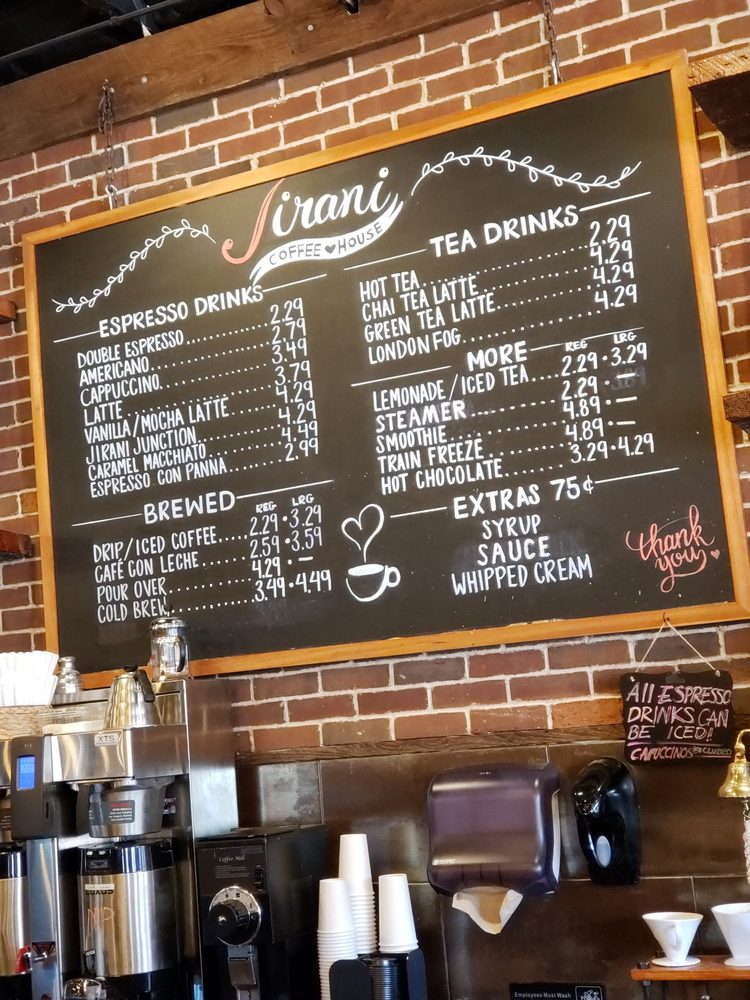 Jirani
COFFEE HOUSE
ESPRESSO DRINKS
DOUBLE ESPRESSO........... 2.29
AMERICANO................ 2.79
CAPPUCCINO............... 3.49
LATTE.................... 3.79
VANILLA/MOCHA LATTE...... 4.29
JIRANI JUNCTION.......... 4.29
CARAMEL MACCHIATO........ 4.49
ESPRESSO CON PANNA....... 2.99
BREWED
REG LRG
DRIP/ICED COFFEE..... 2.29 • 3.29
CAFÉ CON LECHE....... 2.59 • 3.59
POUR OVER............ 4.29 • —
COLD BREW............ 3.49 • 4.49
TEA DRINKS
HOT TEA.................. 2.29
CHAI TEA LATTE........... 4.29
GREEN TEA LATTE.......... 4.29
LONDON FOG............... 4.29
MORE
REG LRG
LEMONADE/ICED TEA.... 2.29 • 3.29
STEAMER.............. 2.29 • —
SMOOTHIE............. 4.89 • —
TRAIN FREEZE......... 4.89 • —
HOT CHOCOLATE........ 3.29 • 4.29
EXTRAS 75¢
SYRUP
SAUCE
WHIPPED CREAM
thank
you
All ESPRESSO
DRINKS CAN
BE ICED!
CAPUCCINOS EXCLUDED
XTS
Coffee Mill
MD
Employees Must Wash